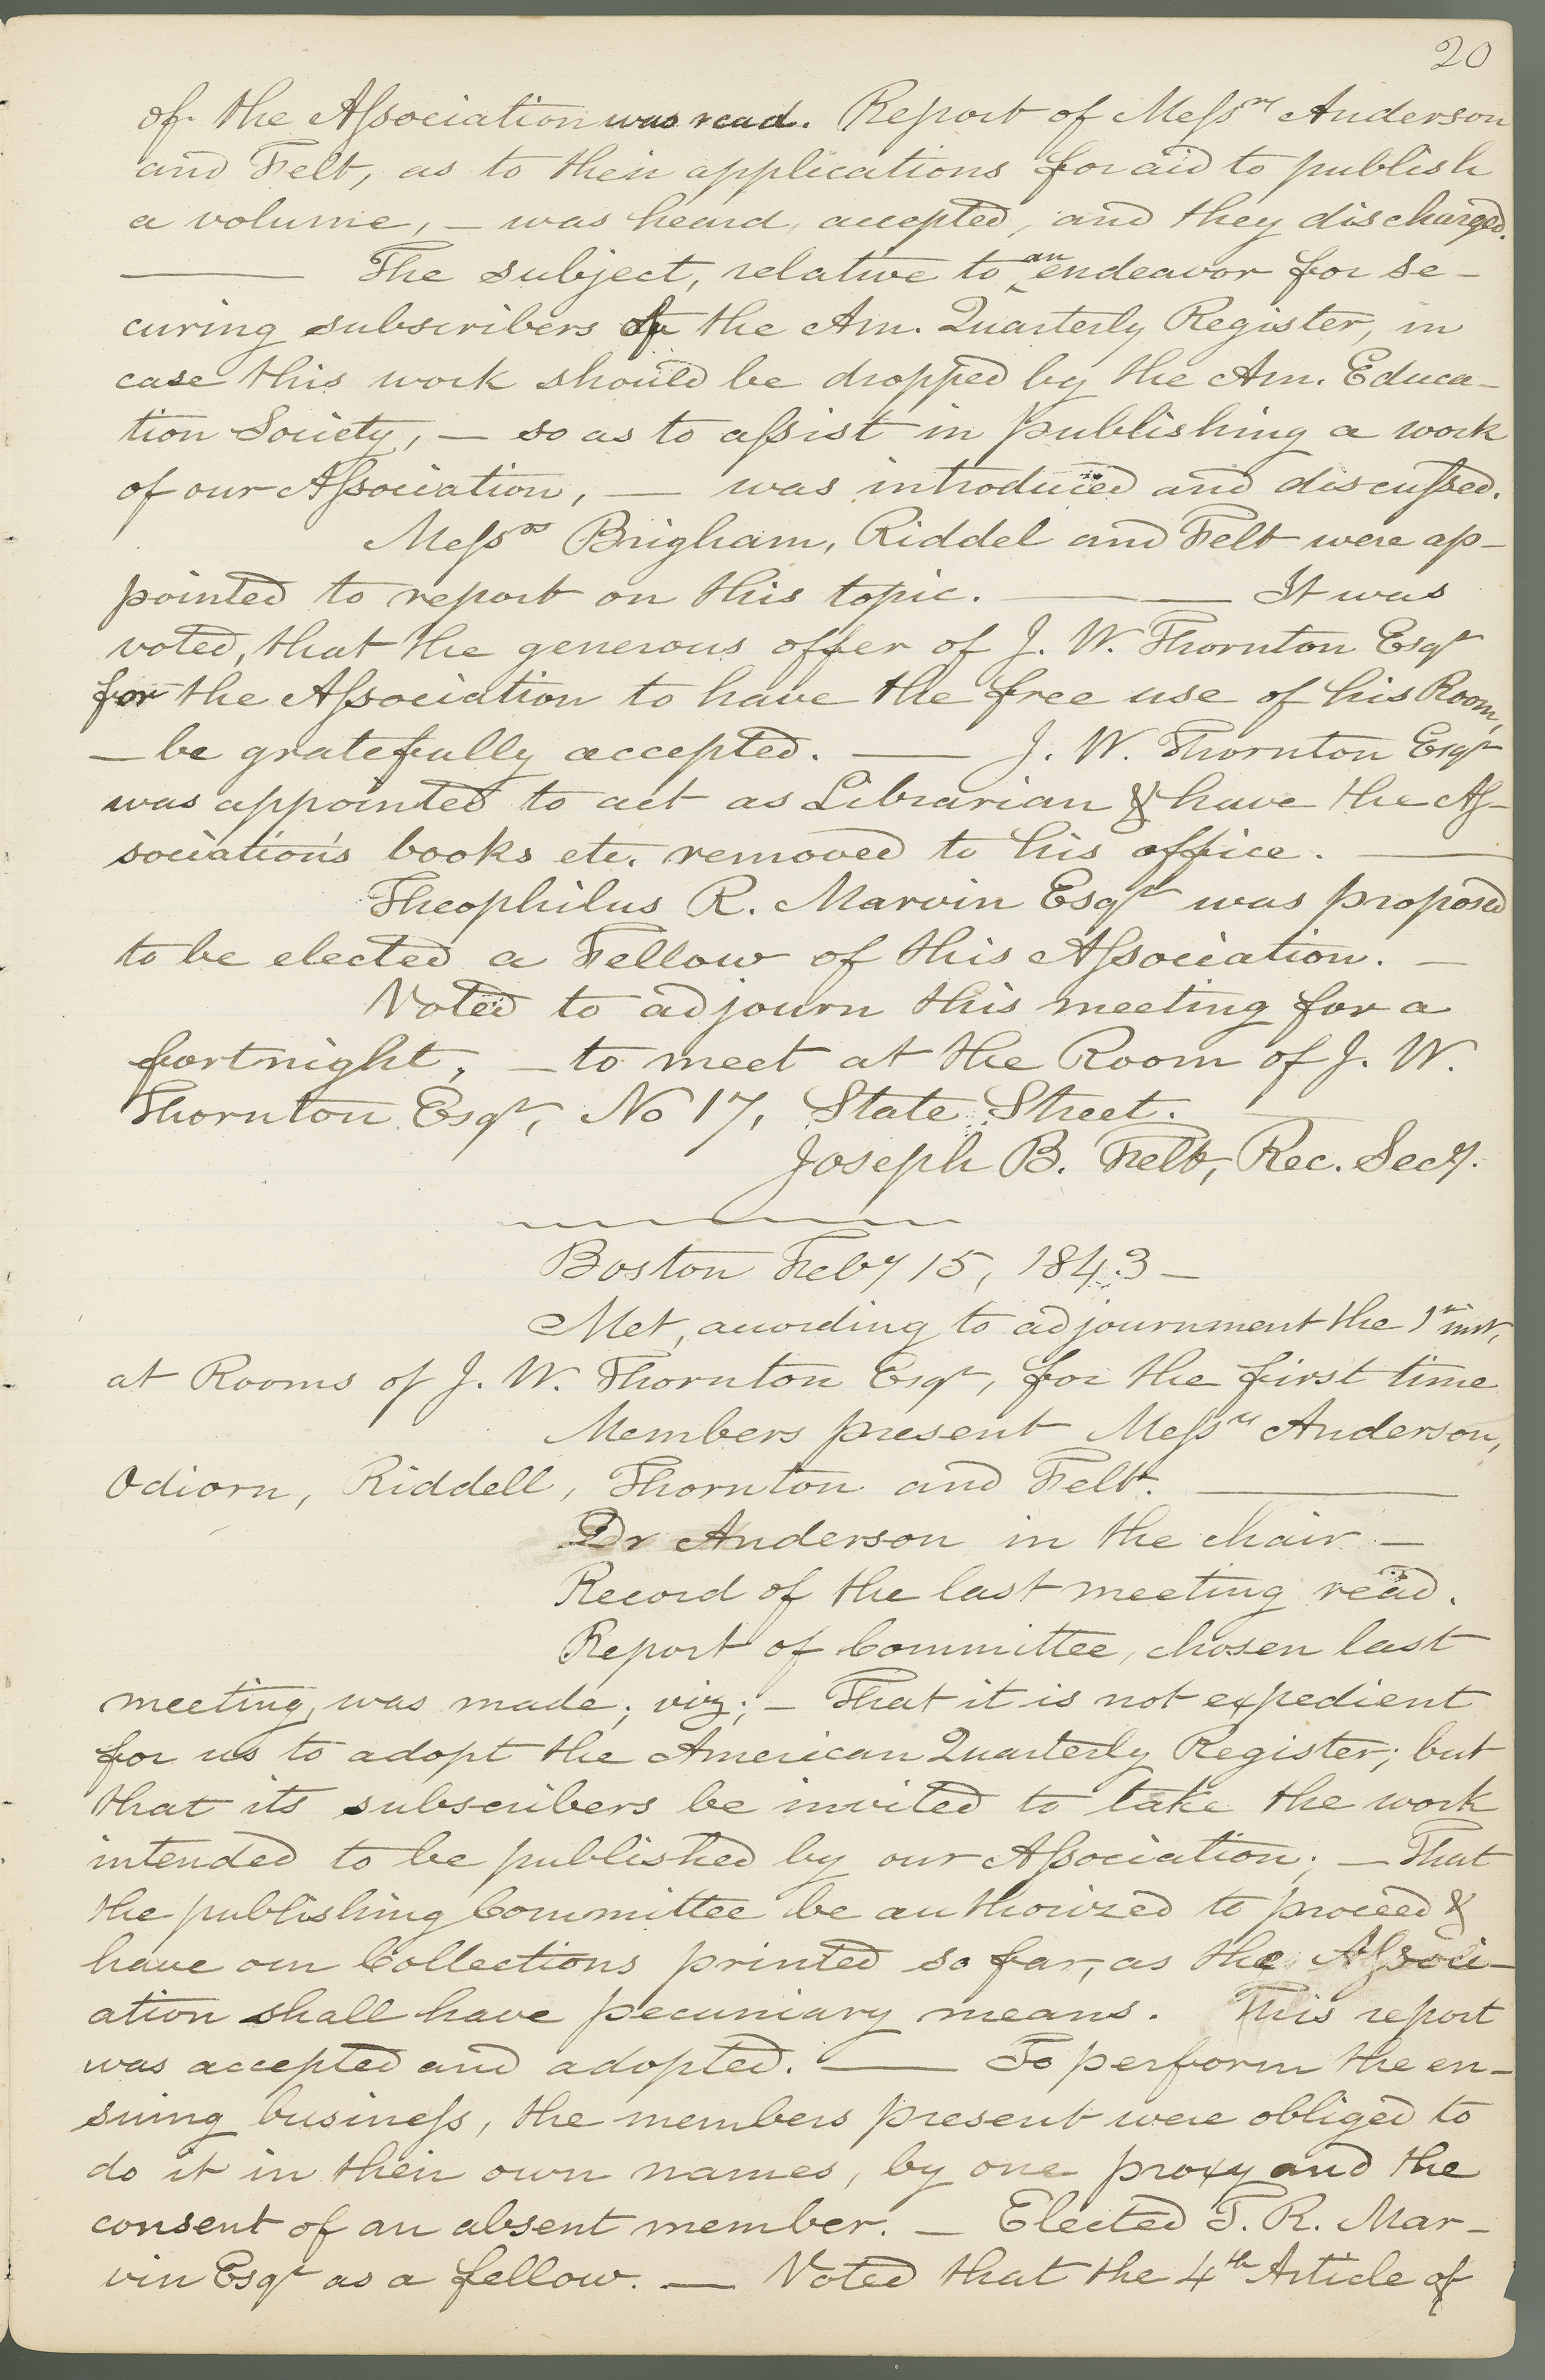 20
of the Aſsociation was read. Report of Meſsrs Anderson
and Felt, as to their applications for aid to publish
a volume, — was heard, accepted, and they discharged.
— The subject, relative to an endeavor for se-
curing subscribers of the Am. Quarterly Register, in
case this work should be dropped by the Am. Educa-
tion Society, — so as to aſsist in publishing a work
of our Aſsociation, — was introduced and discuſsed.
Meſsrs Brigham, Riddel and Felt were ap-
pointed to report on this topic. — It was
voted, that the generous offer of J. W. Thornton Esqr
for the Aſsociation to have the free use of his Room,
— be gratefully accepted. — J. W. Thornton Esqr
was appointed to act as Librarian & have the Aſ-
sociation's books etc. removed to his office. —
Theophilus R. Marvin Esqr was proposed
to be elected a Fellow of this Aſsociation. —
Voted to adjourn this meeting for a
fortnight, — to meet at the Room of J. W.
Thornton Esqr, No 17, State Street.
Joseph B. Felt, Rec. Secy.
Boston Feby 15, 1843 —
Met, according to adjournment the 1st inst,
at Rooms of J. W. Thornton Esqr, for the first time
Members present Meſsrs Anderson,
Odiorn, Riddell, Thornton and Felt. —
Dr Anderson in the chair —
Record of the last meeting read.
Report of Committee, chosen last
meeting, was made; viz; — That it is not expedient
for us to adopt the American Quarterly Register; but
that its subscribers be invited to take the work
intended to be published by our Aſsociation; — That
the publishing Committee be authorized to proceed &
have our Collections printed so far, as the Aſsoci-
ation shall have pecuniary means. This report
was accepted and adopted. — To perform the en-
suing busineſs, the members present were obliged to
do it in their own names, by one proxy and the
consent of an absent member. — Elected T. R. Mar-
vin Esqr as a fellow. — Voted that the 4th Article of